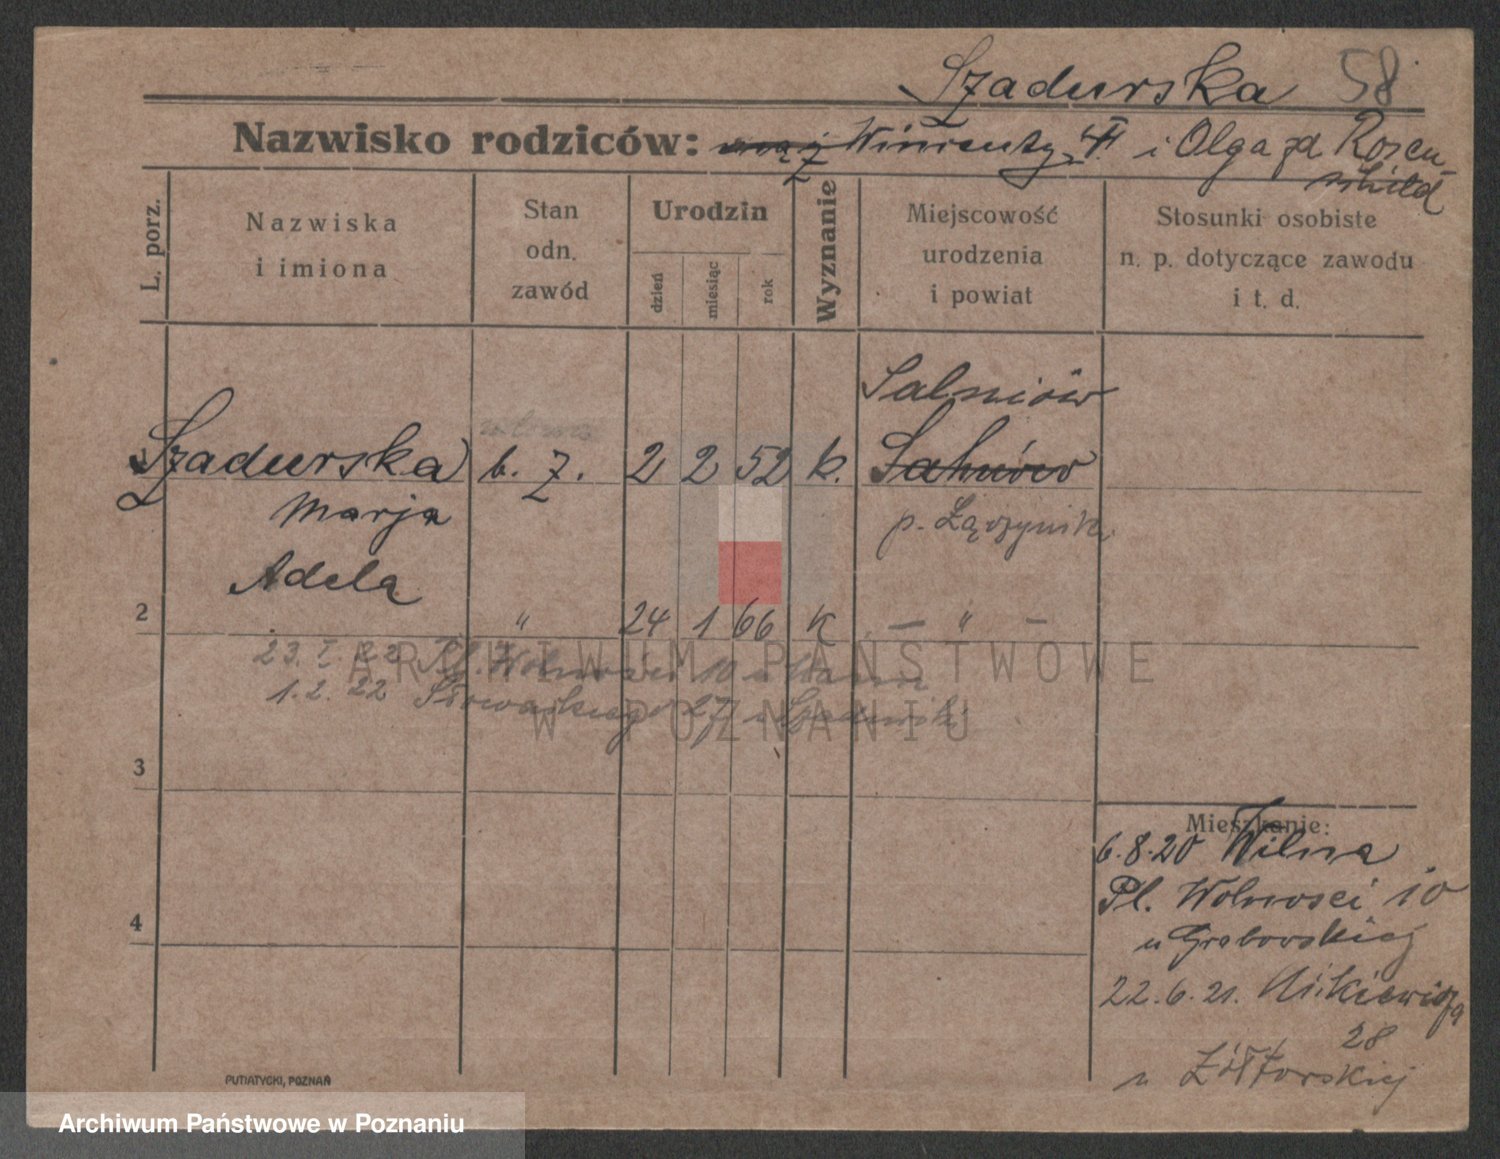 Szadurska 58
Nazwisko rodziców: mąż Wincenty i Olga zd Rosen-
schild
L. porz.
Nazwiska
i imiona
Stan
odn.
zawód
Urodzin
dzień
miesiąc
rok
Wyznanie
Miejscowość
urodzenia
i powiat
Stosunki osobiste
n. p. dotyczące zawodu
i t. d.
Salniów
Szadurska b. z. 2 2 52 k.
Marja
Adela
2 " 24 1 66 K — " —
23. I. 22 Pl. Wolności 10
1. 2. 22 Słowackiego 27 u Szadurski
3
4
Mieszkanie:
6.8.20 Wilna
Pl. Wolnosci 10
u Grabowskiej
22.6.21. Mickiewicza
28
u Żółtorskiej
PUTIATYCKI, POZNAŃ
ARCHIWUM PAŃSTWOWE
W POZNANIU
Archiwum Państwowe w Poznaniu